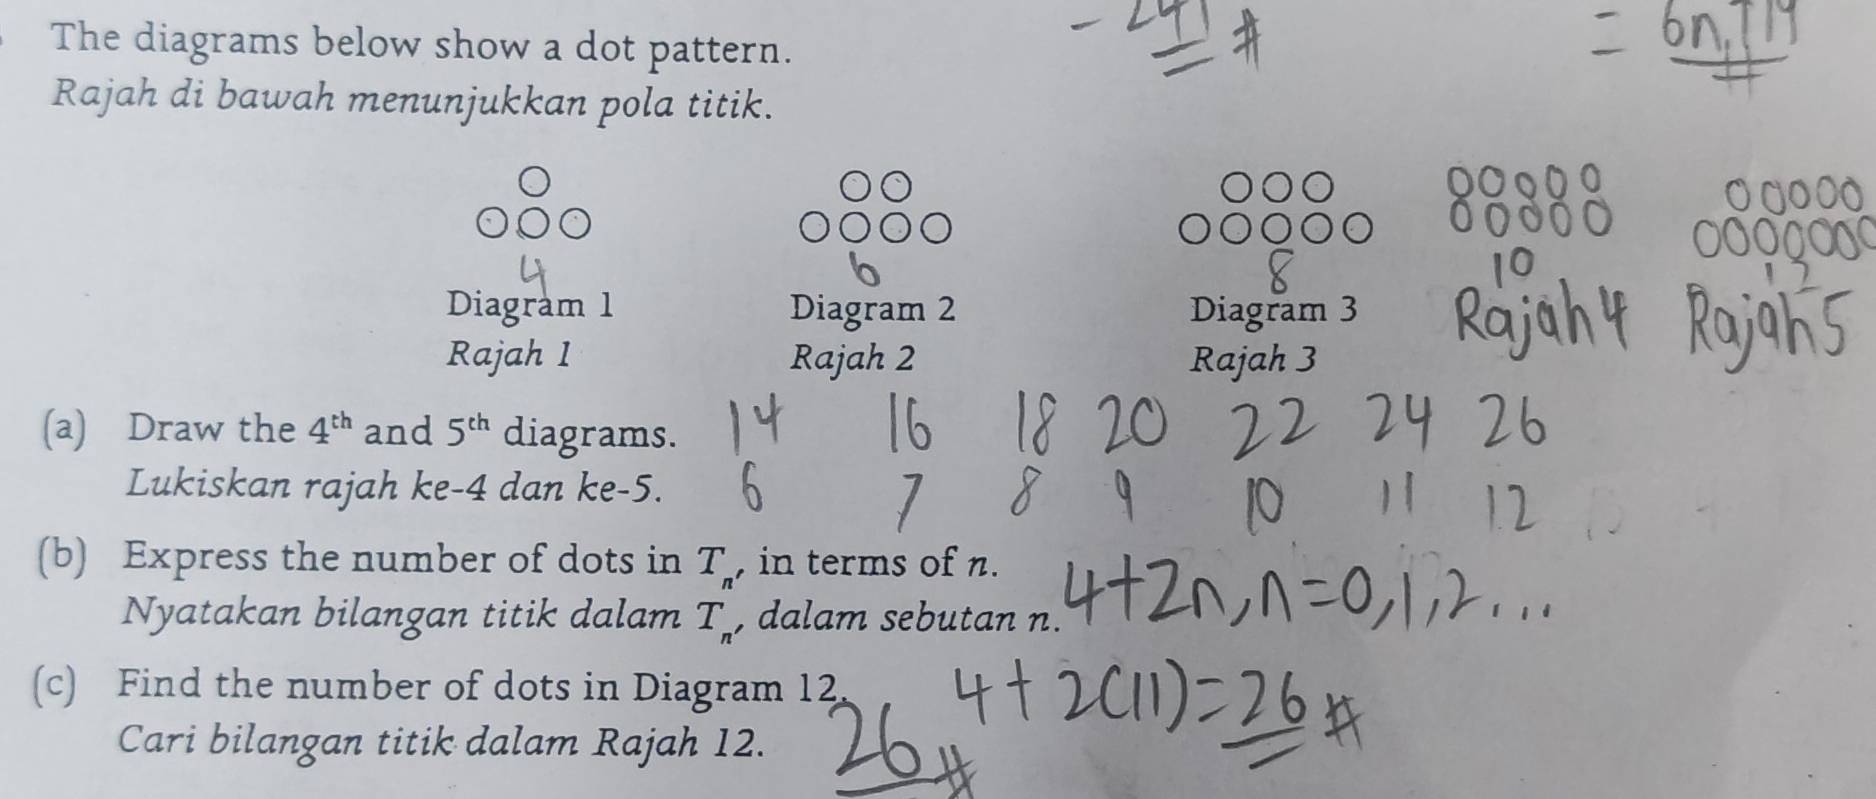 - 241 #
= 6n + 14
The diagrams below show a dot pattern.
Rajah di bawah menunjukkan pola titik.
4 6 8 10 12
Diagram 1 Diagram 2 Diagram 3 Rajah 4 Rajah 5
Rajah 1 Rajah 2 Rajah 3
(a) Draw the 4th and 5th diagrams. 14 16 18 20 22 24 26
Lukiskan rajah ke-4 dan ke-5. 6 7 8 9 10 11 12
(b) Express the number of dots in Tn, in terms of n.
Nyatakan bilangan titik dalam Tn, dalam sebutan n. 4+2n, n=0,1,2...
(c) Find the number of dots in Diagram 12. 4+2(11)=26 #
Cari bilangan titik dalam Rajah 12. 26 #